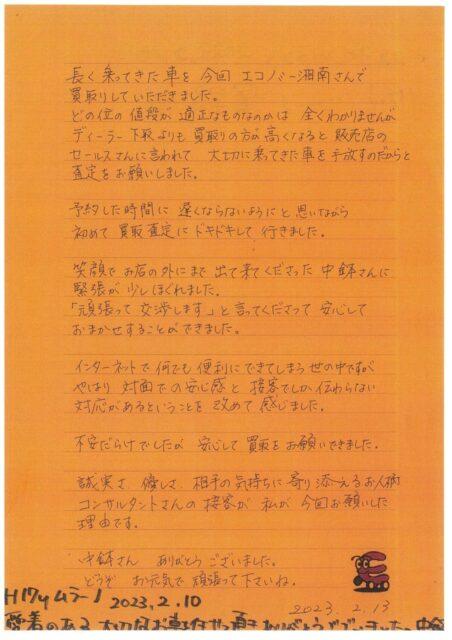 長く乗ってきた車を 今回 エコノミー湘南さんで
買取りしていただきました。
どの位の値段が 適正なものなのかは 全くわかりませんが
ディーラー下取よりも 買取りの方が高くなると 販売店の
セールスさんに言われて 大切に乗ってきた車を手放すのだからと
査定をお願いしました。
予約した時間に 遅くならないようにと思いながら
初めて買取査定に ドキドキして 行きました。
笑顔で お店の外にまで 出て来てくださった 中鉢さんに
緊張が少しほぐれました。
「頑張って 交渉します」と言ってくださって 安心して
おまかせすることができました。
インターネットで何でも便利にできてしまう世の中ですが
やはり 対面での安心感と 接客でしか伝わらない
対応があるということを 改めて感じました。
不安だらけでしたが 安心して買取をお願いできました。
誠実さ 優しさ 相手の気持ちに寄り添えるお人柄
コンサルタントさんの接客が 私が 今回お願いした
理由です。
中鉢さん ありがとうございました。
どうぞ お元気で 頑張って下さいね。
2023.2.13
H17y ムラーノ 2023.2.10
愛着のある 大切なお車
ありがとうございました